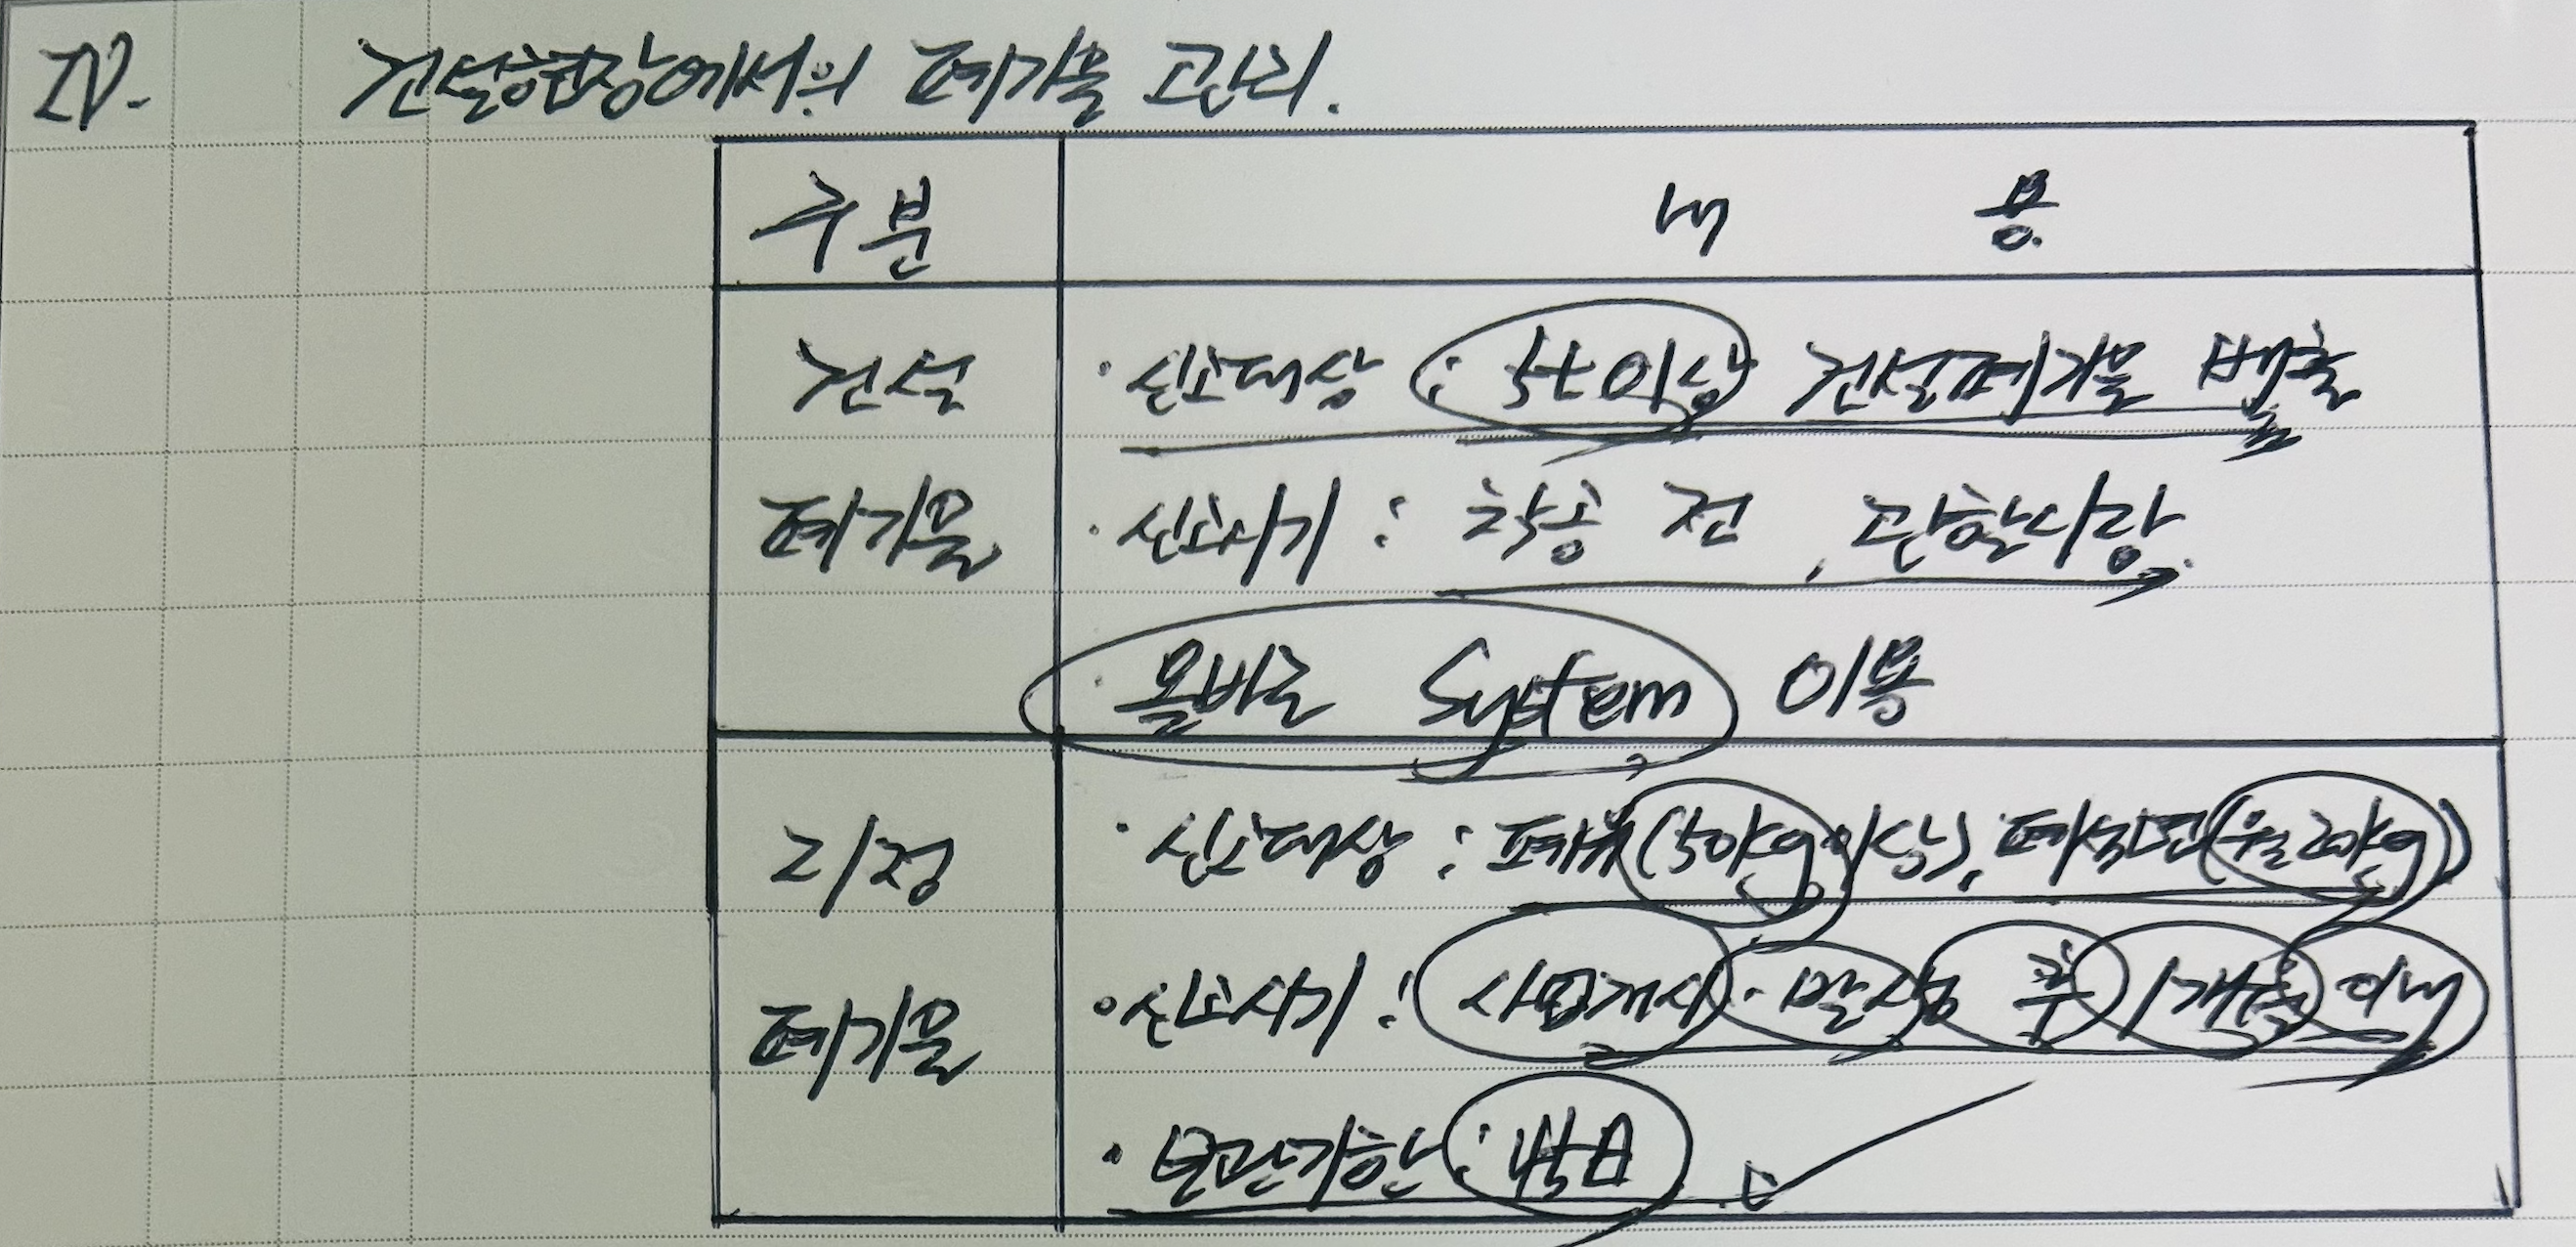 IV. 건설현장에서의 폐기물 관리.
구분 내 용
건설 · 신고대상 : 5t 이상 건설폐기물 배출
폐기물 · 신고시기 : 착공 전, 관할시랑.
· 올바로 System 이용
지정 · 신고대상 : 폐유(50kg이상), 폐석면(월 20kg)
폐기물 · 신고시기 : 사업개시·발생 후 1개월 이내
· 보관기한 : 45日